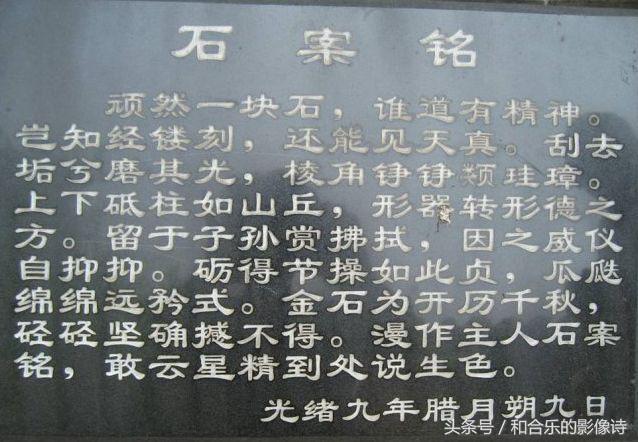 石案铭
顽然一块石，谁道有精神。
岂知经镂刻，还能见天真。刮去
垢兮磨其光，棱角铮铮颊珪璋。
上下砥柱如山丘，形器转形德之
方。留于子孙赏拂拭，因之威仪
自抑抑。砺得节操如此贞，瓜瓞
绵绵远矜式。金石为开历千秋，
硁硁坚确撼不得。漫作主人石案
铭，敢云星精到处说生色。
光绪九年腊月朔九日
头条号／和合乐的影像诗